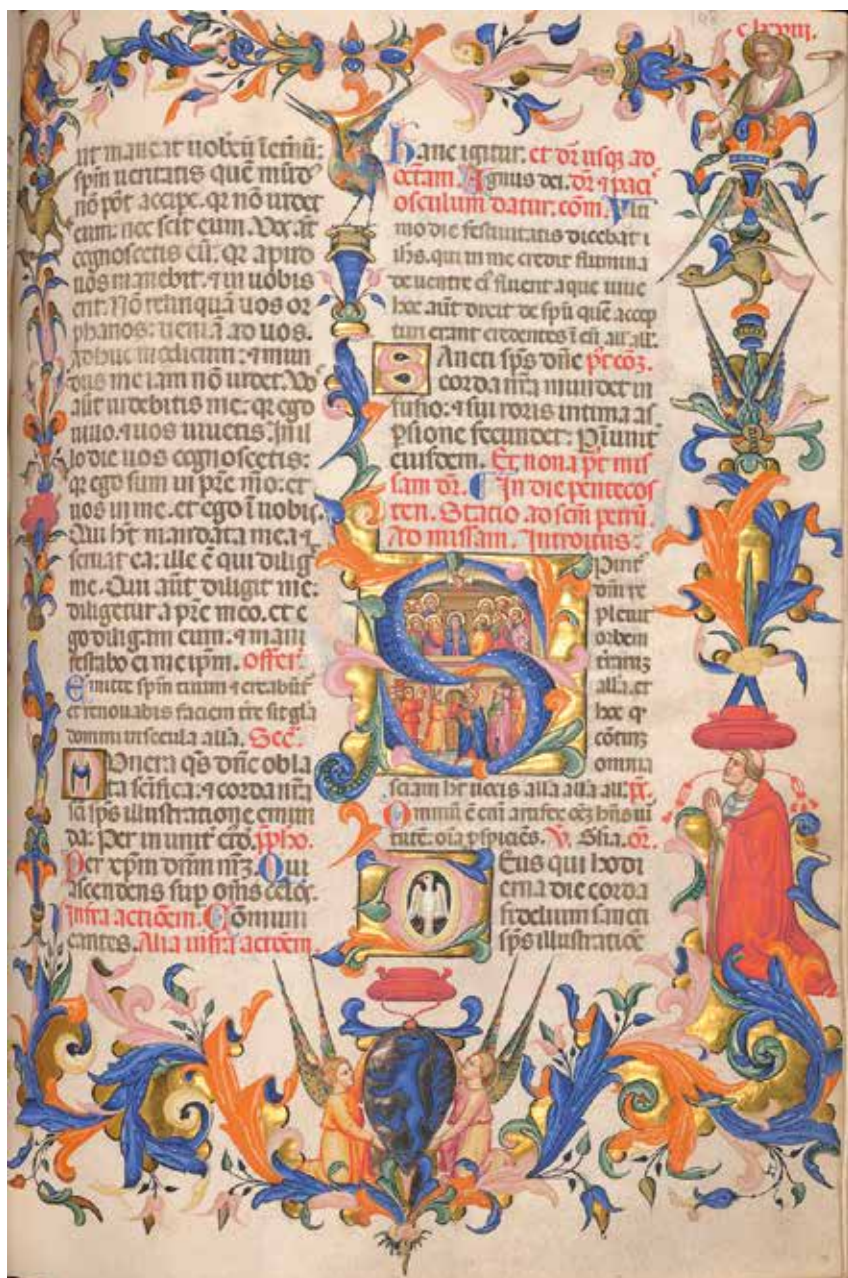 clxviii.
168
ut maneat uobcū ī etnū:
spm ueritatis quē mūd
nō pōt accipe. qr nō uidet
eum: nec scit eum. Vos aūt
cognoscetis eū: qr apud
uos manebit. ⁊ in uobis
erit. Nō relinquā uos or
phanos: ueniā ad uos.
Adhuc modicum: ⁊ mun
dus me iam nō uidet. Vos
aūt uidebitis me: qr ego
uiuo. ⁊ uos uiuetis. In il
lo die uos cognoscetis:
qr ego sum in pre mō: et
uos in me. et ego ī uobis.
Qui ht mandata mea ⁊
seruat ea: ille ē qui diligit
me. Qui aūt diligit me:
diligetur a pre meo. et e
go diligam eum. ⁊ mani
festabo ei me ipm. Offer.
Emitte spm tuum ⁊ creabūt
et renouabis faciem tre sit gla
domini in secula alla. Sec.
Munera qs dne obla
ta scifica: ⁊ corda nra
sci sps illustratione emun
da: Per in unit. ppho.
Per xpm dnm nrm. Qui
ascendens sup oms celos.
Infra actioem. Comuni
cantes. Alia infra actioem.
Hanc igitur. et dr usqz ad
octam. Agnus dei. dr ⁊ paci
osculum datur. com. Vlti
mo die festiuitatis dicebat i
ihs. qui in me credit flumina
de uentre ei fluent aque uiue
hoc aūt dixit de spu quē accep
turi erant credentes ī eū all all.
Sancti sps dne pt coz.
corda nra mundet in
fusio: ⁊ sui roris intima as
psione fecundet: P in unit
eiusdem. Et nona pt mis
sam dr. In die penteco
sten. Statio ad scm petrū.
Ad missam. Introitus:
Spirit
dni re
pleuit
orbem
terrarz
alla. et
hoc qr
cōtinz
omnia
sciam ht uocis alla alla all. ps.
Omniū ē eni artifex oēz hns ui
tutē. oīa pspiciēs. V. Gla. or.
Deus qui hodi
erna die corda
fidelium sancti
sps illustratioe